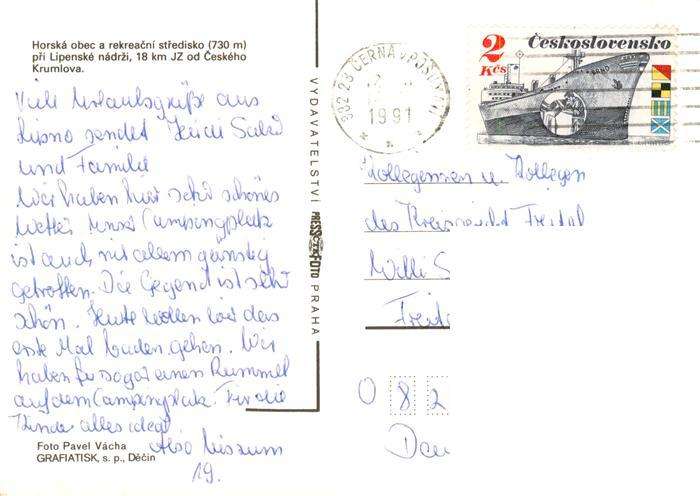 Horská obec a rekreační středisko (730 m)
při Lipenské nádrži, 18 km JZ od Českého
Krumlova.
Viele Urlaubsgrüße aus
Lipno sendet
und Familie
Wir haben hier sehr schönes
Wetter. Unser Campingplatz
ist auch mit allem günstig
getroffen. Die Gegend ist sehr
schön. Heute wollen wir das
erste Mal baden gehen. Wir
haben sogar einen Rummel
auf dem Campingplatz. Für die
Kinder alles ideal.
Also bis zum
19.
Foto Pavel Vácha
GRAFIATISK, s. p., Děčín
VYDAVATELSTVÍ PRESSFOTO PRAHA
382 23 ČERNÁ V POŠUMAVÍ
1991
2 Kčs
Československo
Kolleginnen u. Kollegen
des
Willi S
Freit
0 8 2